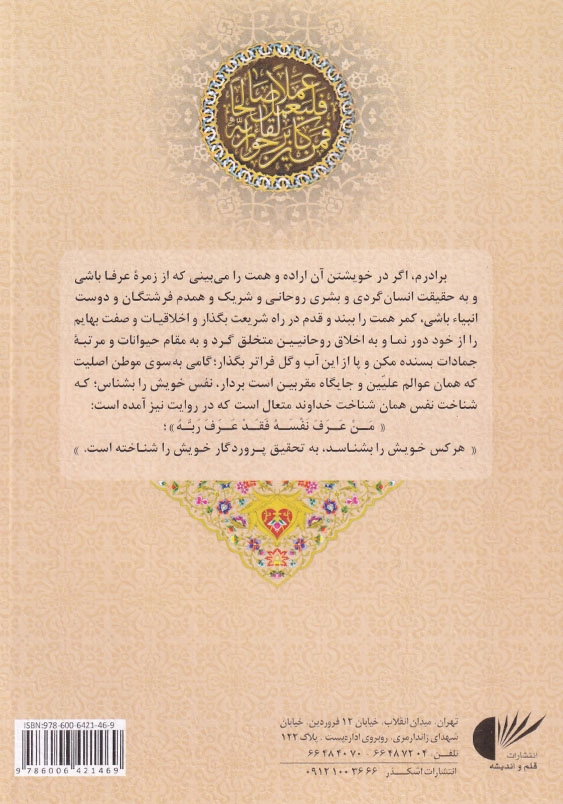 فمن كان يرجوا لقاء ربه فليعمل عملاً صالحا
برادرم، اگر در خویشتن آن اراده و همت را می‌بینی که از زمرۀ عرفا باشی
و به حقیقت انسان گردی و بشری روحانی و شریک و همدم فرشتگان و دوست
انبیاء باشی، کمر همت را ببند و قدم در راه شریعت بگذار و اخلاقیات و صفت بهایم
را از خود دور نما و به اخلاق روحانیین متخلق گرد و به مقام حیوانات و مرتبۀ
جمادات بسنده مکن و پا از این آب و گل فراتر بگذار؛ گامی به‌سوی موطن اصلیت
که همان عوالم علیّین و جایگاه مقربین است بردار، نفس خویش را بشناس؛ که
شناخت نفس همان شناخت خداوند متعال است که در روایت نیز آمده است:
« مَنْ عَرَفَ نَفْسَهُ فَقَدْ عَرَفَ رَبَّهُ »؛
« هرکس خویش را بشناسد، به تحقیق پروردگار خویش را شناخته است. »
ISBN:978-600-6421-46-9
9 786006 421469
تهران، میدان انقلاب، خیابان ۱۲ فروردین، خیابان
شهدای ژاندارمری، روبروی اداره‌پست . پلاک ۱۲۲
تلفن: ۶۶ ۴۸ ۷۲ ۰۴ - ۶۶ ۴۸ ۴۰ ۷۰
انتشارات اشکذر ۰۹۱۲ ۱۰۰ ۳۶ ۶۶
انتشارات
قلم و اندیشه